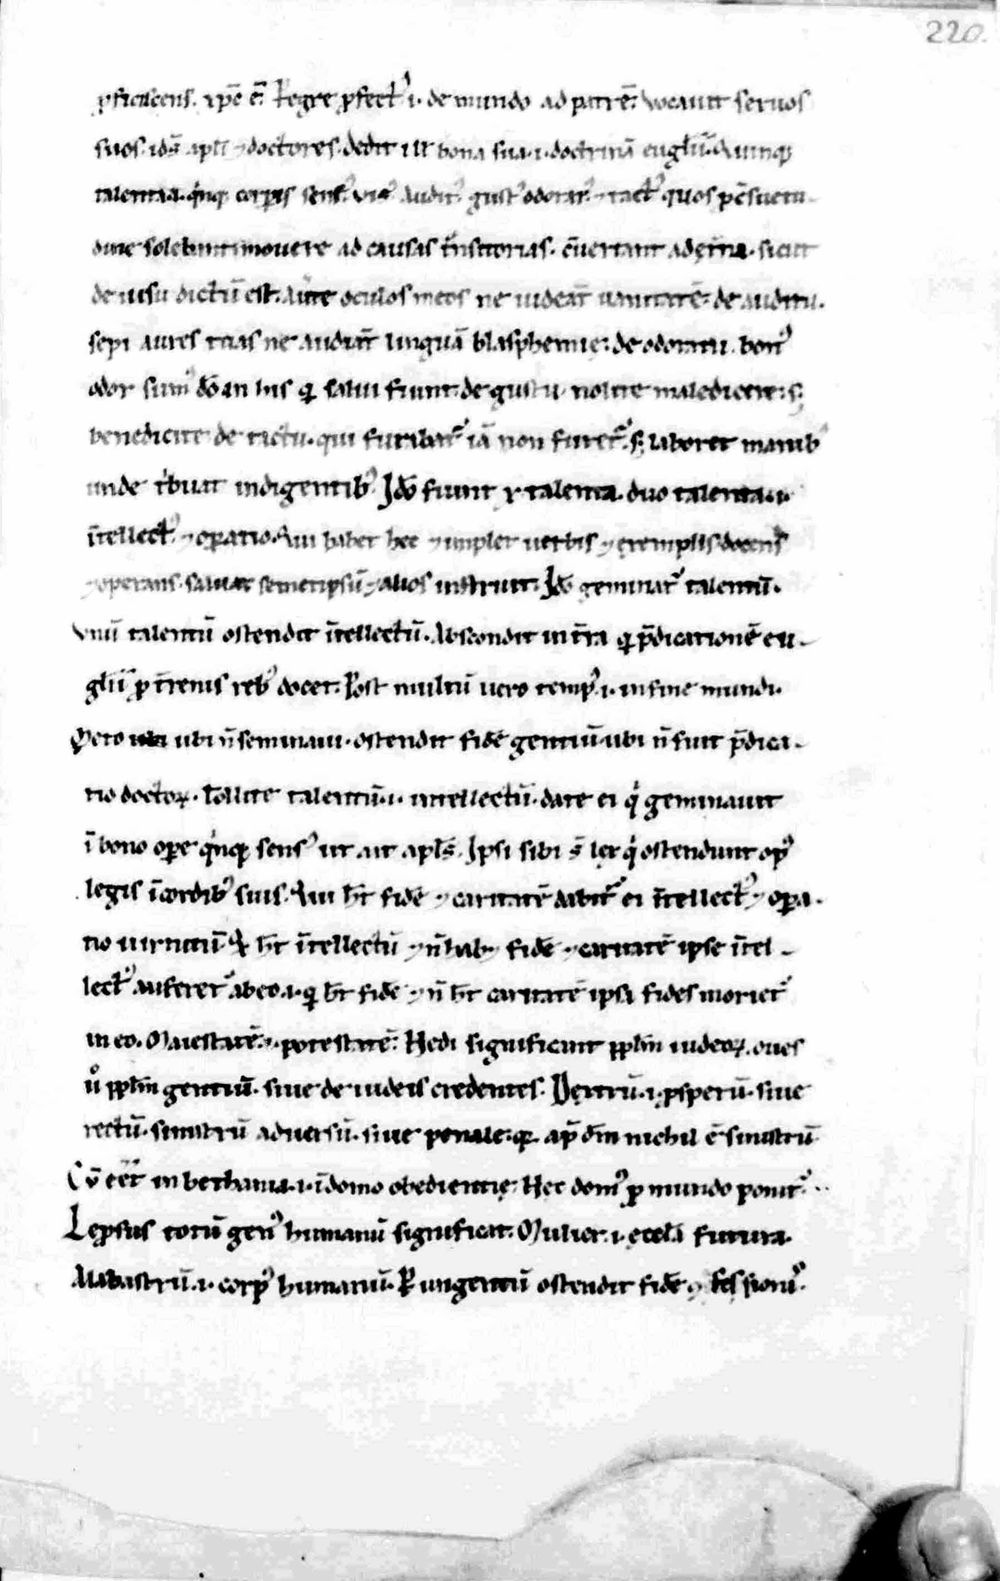 220.
p̱ficiscens. xp̄c ē. Regre p̱fect᷒ .i. de mundo ad patrē. Vocauit seruos
suos. id ē apl̄i ⁊ doctores. dedit ill̄ bona sua .i. doctrinā euḡliī. Quinq;
talenta .i. q̇nq; corp̱is sens᷒ uis᷒ audit᷒ gust᷒ odorat᷒ ⁊ tact᷒ quos p̱ c̄suetu-
dinē solebant mouere ad causas t̄nsitorias. c̄uertant ad ęt̄na. sicut
de uisu dictū est. Auerte oculos meos ne uideāt uanitatē. de auditu.
sepi aures tuas ne audiāt linguā blasphemię. de odoratu. bon᷒
odor sum᷒ dō in his q̇ salui fiunt. de gustu. nolite maledicere. s;
benedicite. de tactu. qui furibat᷒ iā non furet᷒. s; laboret manib᷒
unde ṫbuat indigentib᷒. Idō fiunt x. talenta. duo talenta .i.
ītellect᷒ ⁊ op̱atio. Qui habet hec ⁊ implet uerbis ⁊ exemplis docens
⁊ operans. saluat semetipsū ⁊ alios instruit. Idō geminat᷒ talentū.
Vnū talentū ostendit ītellectū. Abscondit in t̄ra q̇ p̄dicationē eu-
ḡliī p̱ t̄renis reb᷒ docet. Post multū uero temp᷒ .i. in fine mundi.
Meto ubi n̄ seminaui. ostendit fidē gentiū ubi n̄ fuit p̄dica-
tio doctoꝝ. Tollite talentū .i. intellectū. date ei q̇ geminauit
ī bono ope̱ q̇nq; sens᷒ ut ait apl̄s. Ipsi sibi s̄ lex q̇ ostendunt op᷒
legis ī cordib᷒ suis. Qui h̄t fidē ⁊ caritatē dabit᷒ ei ītellect᷒ ⁊ op̱a-
tio uirtutū. Q̇ h̄t ītellectū ⁊ n̄ hab; fidē ⁊ caritatē ipse ītel-
lect᷒ auferet᷒ ab eo .i. q̇ h̄t fidē ⁊ n̄ h̄t caritatē ipsa fides moriet᷒
in eo. Maiestatē .i. potestatē. Hedi significant pp̄lm iudeoꝝ. oues
ů pp̄lm gentiū. siue de iudeis credentes. Dextrū .i. p̱sperū. siue
rectū. sinistrū aduersū. siue penale. q; ap̄ dm̄ nichil ē sinistrū.
Cū eēt in bethania .i. ī domo obedientię. Hec dom᷒ p̱ mundo ponit᷒.
Lep̱sus totū gen᷒ humanū significat. Mulier .i. ęccl̄a futura.
Alabastrū .i. corp᷒ humanū. P̱ ungentū ostendit fidē ⁊